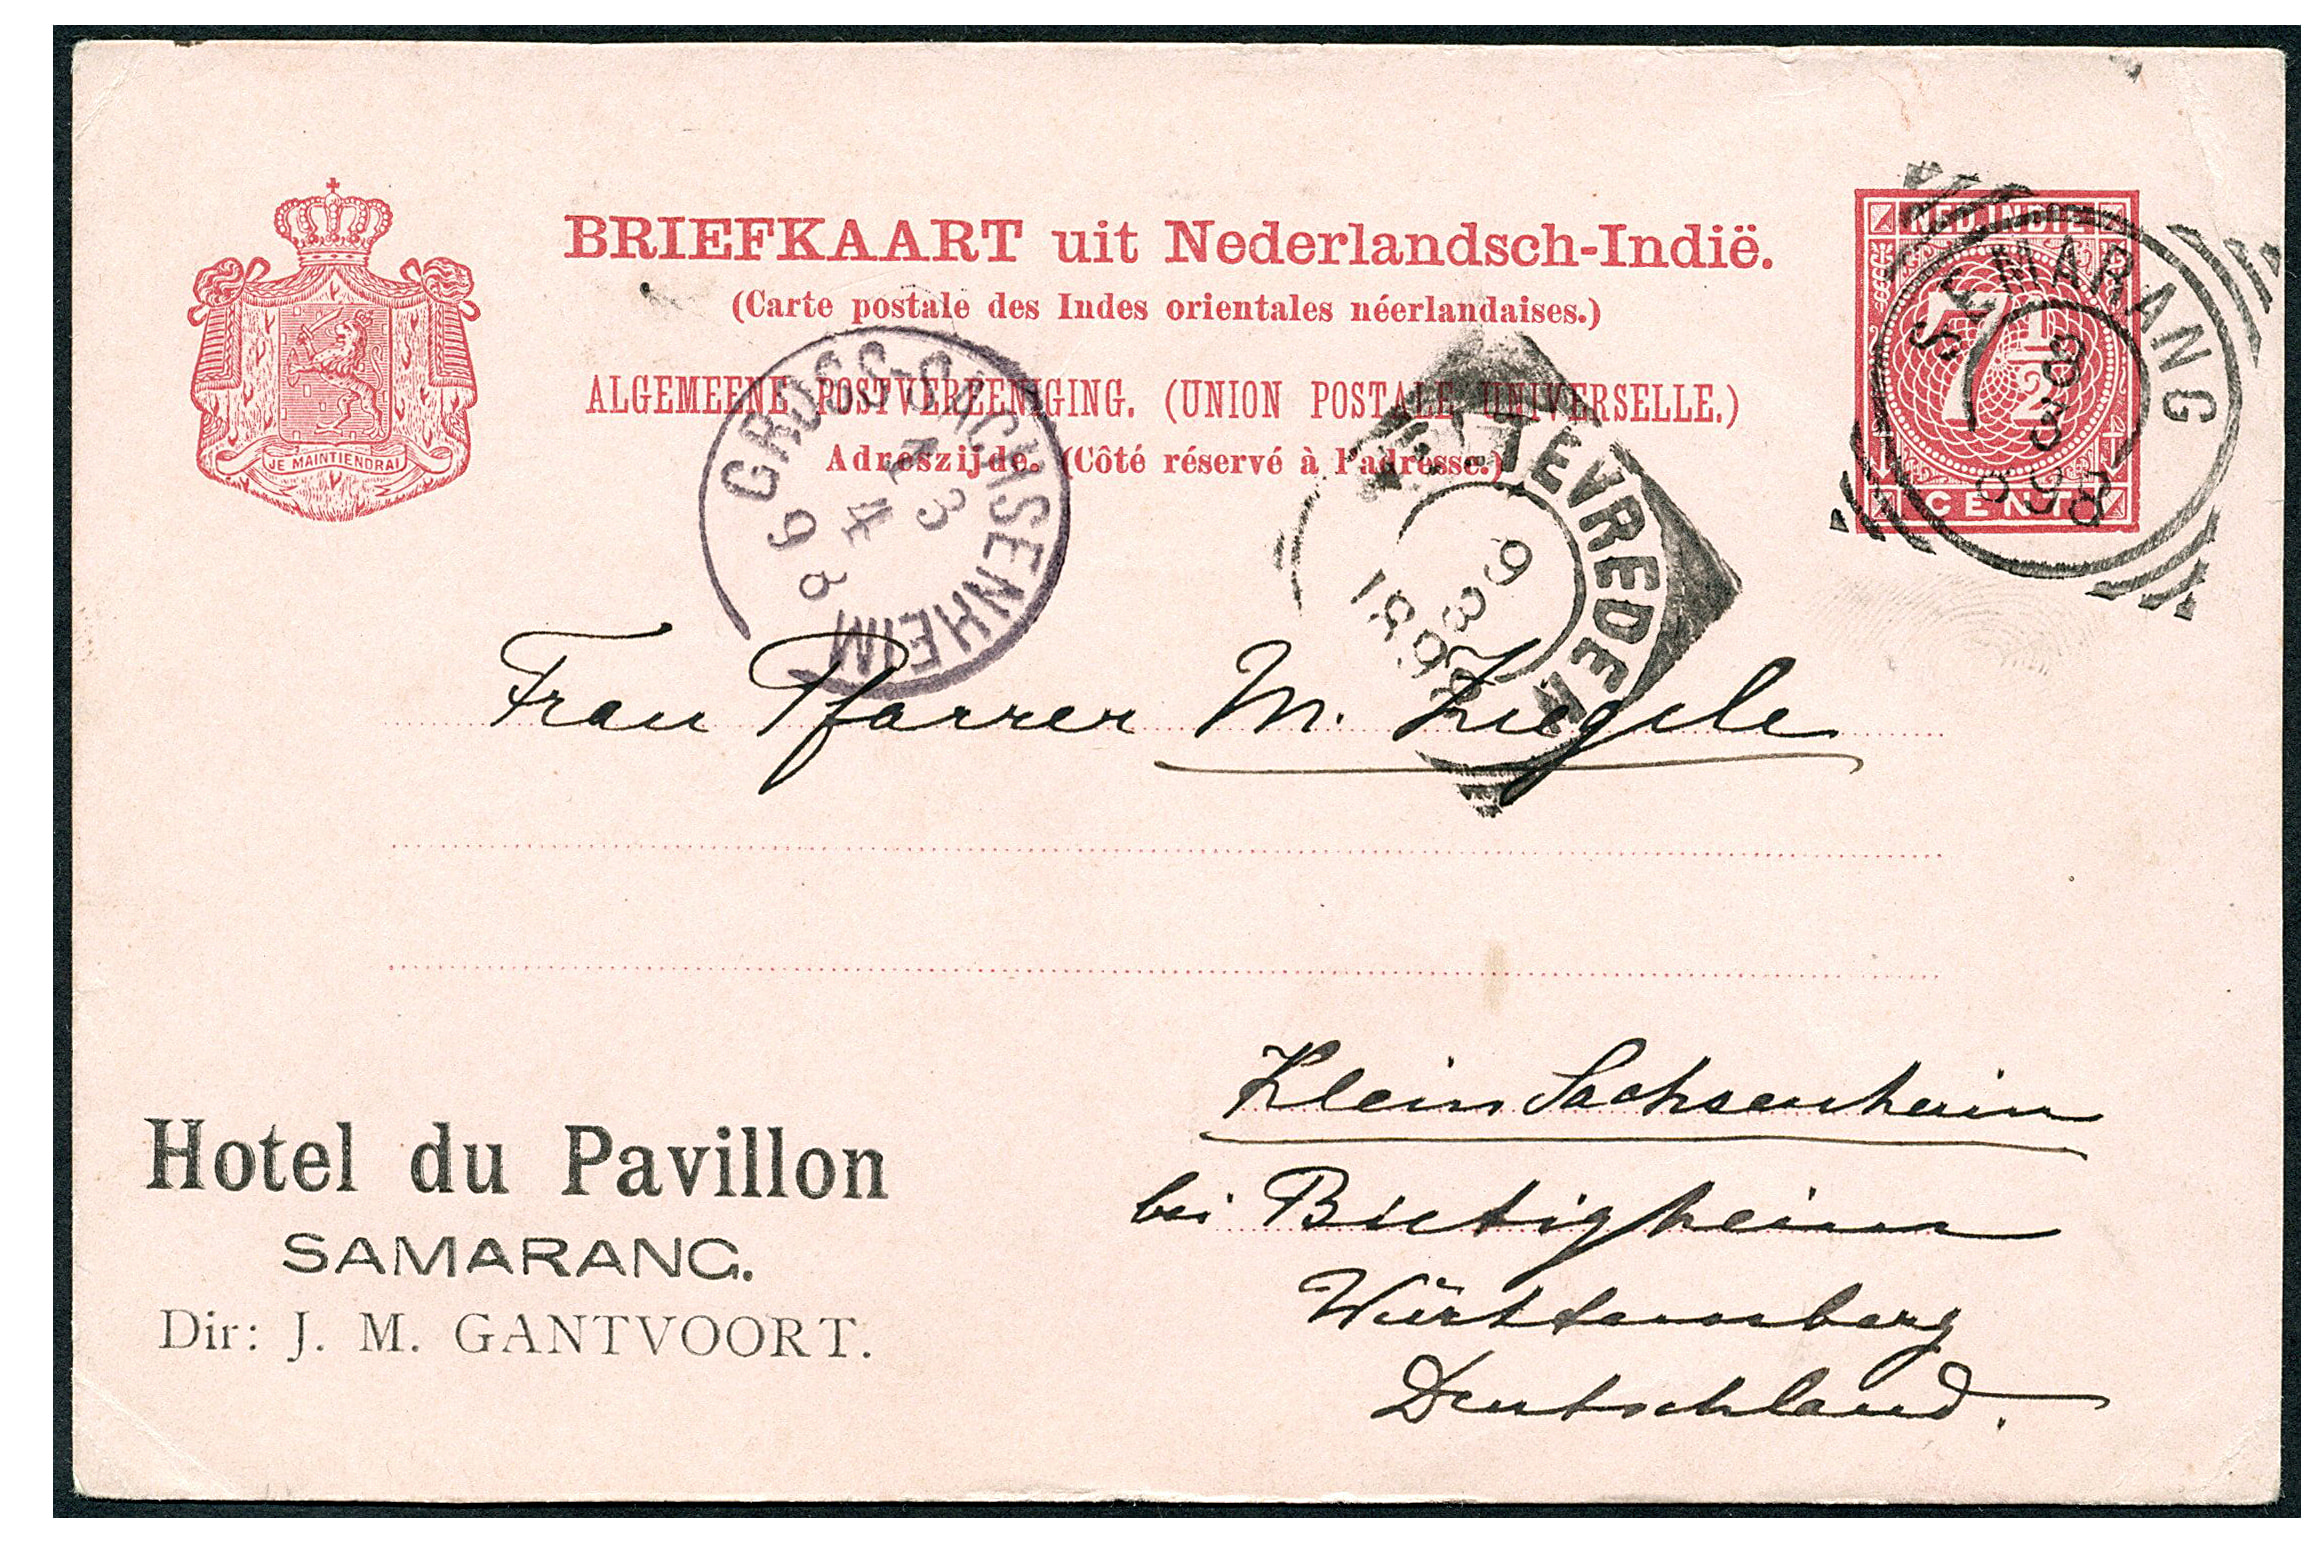 BRIEFKAART uit Nederlandsch-Indië.
(Carte postale des Indes orientales néerlandaises.)
ALGEMEENE POSTVEREENIGING. (UNION POSTALE UNIVERSELLE.)
Adreszijde. (Côté réservé à l'adresse.)
JE MAINTIENDRAI
NED. INDIE
7 1/2
CENT
SEMARANG
8
3
898
GROSS-SACHSENHEIM
3
4
98
WELTEVREDEN
9
3
1898
Frau Pfarrer M. Ziegele
Klein Sachsenheim
bei Bietigheim
Württemberg
Deutschland.
Hotel du Pavillon
SAMARANG.
Dir: J. M. GANTVOORT.